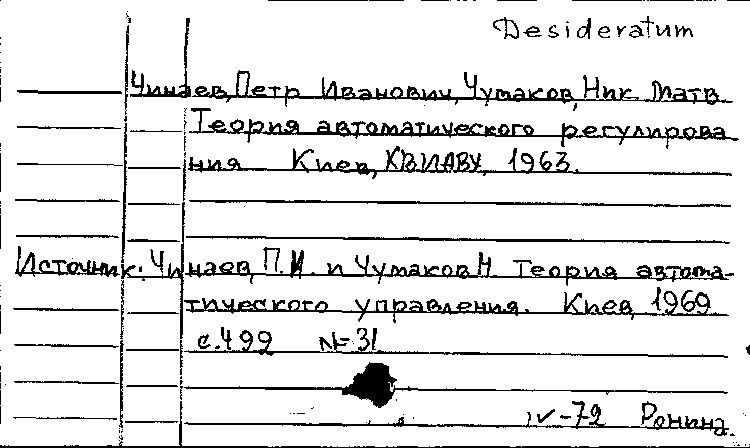 Desideratum
Чинаев, Петр Иванович, Чумаков, Ник. Матв.
Теория автоматического регулирова
ния Киев, КВИАВУ, 1963.
Источник: Чинаев, П.И. и Чумаков Н. Теория автома-
тического управления. Киев, 1969
с.499 №31
IV-72 Ронина.